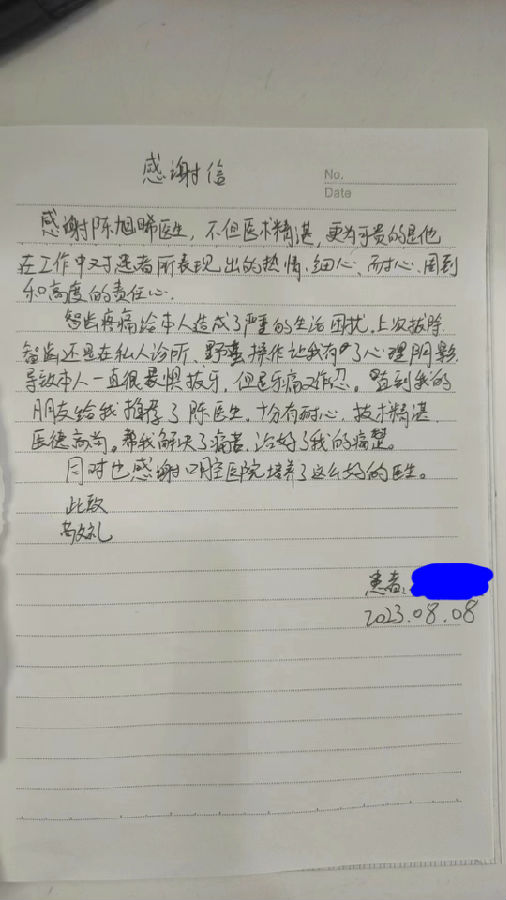 感谢信
No.
Date
感谢陈旭晞医生，不但医术精湛，更为可贵的是他
在工作中对患者所表现出的热情、细心、耐心、周到
和高度的责任心.
智齿疼痛给本人造成了严重的生活困扰，上次拔除
智齿还是在私人诊所、野蛮操作让我有了心理阴影
导致本人一直很畏惧拔牙，但是牙痛又难忍。直到我的
朋友给我推荐了陈医生，十分有耐心，技术精湛
医德高尚。帮我解决了痛苦，治好了我的痛楚。
同时也感谢口腔医院培养了这么好的医生。
此致
敬礼
患者：
2023.08.08